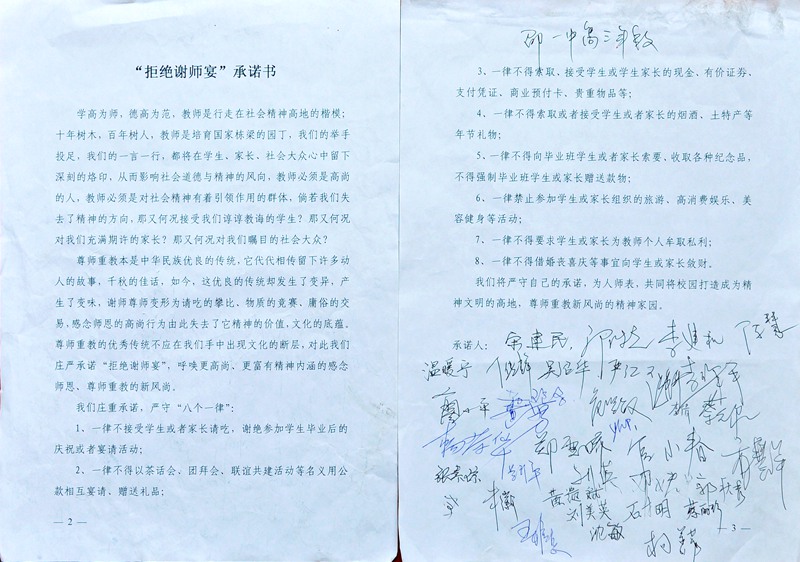 “拒绝谢师宴”承诺书
学高为师，德高为范，教师是行走在社会精神高地的楷模；
十年树木，百年树人，教师是培育国家栋梁的园丁，我们的举手
投足，我们的一言一行，都将在学生、家长、社会大众心中留下
深刻的烙印，从而影响社会道德与精神的风向，教师必须是高尚
的人，教师必须是对社会精神有着引领作用的群体，倘若我们失
去了精神的方向，那又何况接受我们谆谆教诲的学生？那又何况
对我们充满期许的家长？那又何况对我们瞩目的社会大众？
尊师重教本是中华民族优良的传统，它代代相传留下许多动
人的故事，千秋的佳话，如今，这优良的传统却发生了变异，产
生了变味，谢师尊师变形为请吃的攀比、物质的竞赛、庸俗的交
易，感念师恩的高尚行为由此失去了它精神的价值，文化的底蕴。
尊师重教的优秀传统不应在我们手中出现文化的断层，对此我们
庄严承诺“拒绝谢师宴”，呼唤更高尚、更富有精神内涵的感念
师恩、尊师重教的新风尚。
我们庄重承诺，严守“八个一律”：
1、一律不接受学生或者家长请吃，谢绝参加学生毕业后的
庆祝或者宴请活动；
2、一律不得以茶话会、团拜会、联谊共建活动等名义用公
款相互宴请、赠送礼品；
— 2 —
邵一中高三年级
3、一律不得索取、接受学生或学生家长的现金、有价证券、
支付凭证、商业预付卡、贵重物品等；
4、一律不得索取或者接受学生或者家长的烟酒、土特产等
年节礼物；
5、一律不得向毕业班学生或者家长索要、收取各种纪念品，
不得强制毕业班学生或者家长赠送款物；
6、一律禁止参加学生或者家长组织的旅游，高消费娱乐、美
容健身等活动；
7、一律不得要求学生或者家长为教师个人牟取私利；
8、一律不得借婚丧喜庆等事宜向学生或者家长敛财。
我们将严守自己的承诺，为人师表，共同将校园打造成为精
神文明的高地，尊师重教新风尚的精神家园。
承诺人：余建民
温暖宇
严仁
小平
郑雪
官小春
刘英
刘美英
石明
沈敏
蔡丽珍
— 3 —